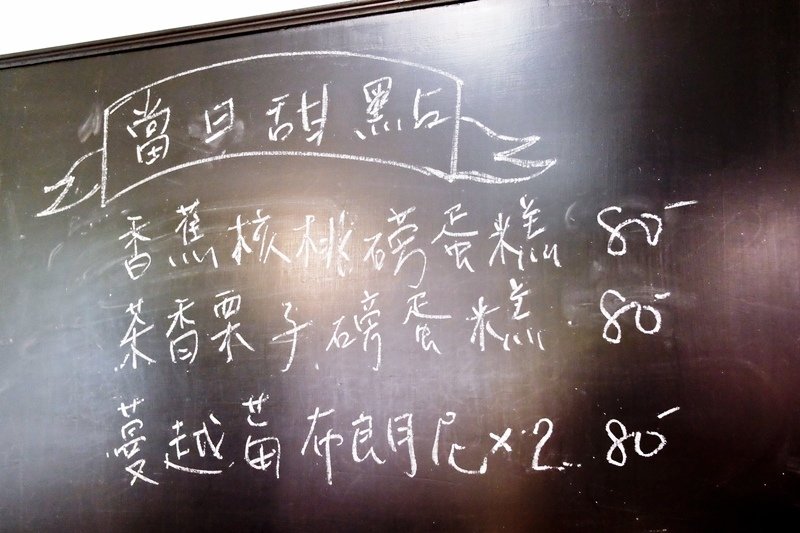 當日甜點
香蕉核桃磅蛋糕 80-
茶香栗子磅蛋糕 80-
蔓越莓布朗尼×2 80-